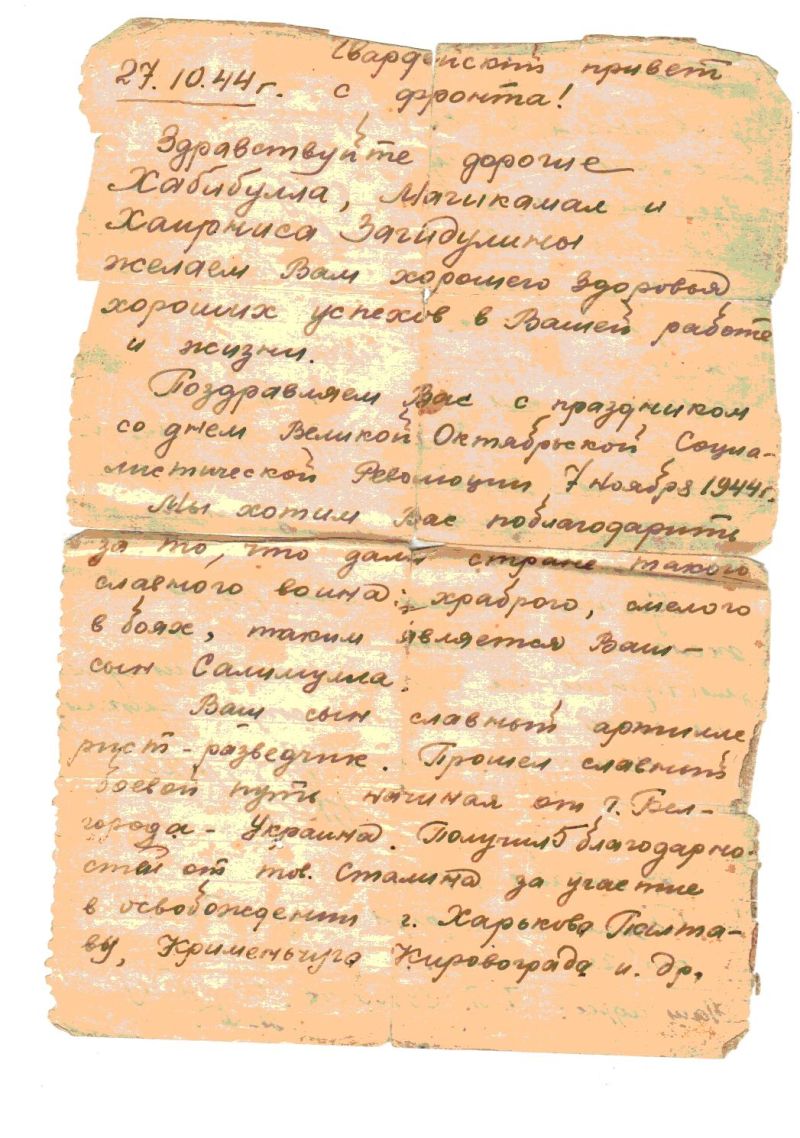 Гвардейский привет
27.10.44г. с фронта!
Здравствуйте дорогие
Хабибулла, Магикамал и
Хаирниса Загидулины
желаем Вам хорошего здоровья,
хороших успехов в Вашей работе
и жизни.
Поздравляем Вас с праздником
со днем Великой Октябрьской Социа-
листической Революции 7 ноября 1944г.
Мы хотим Вас поблагодарить
за то, что дали стране такого
славного воина: храброго, смелого
в боях, таким является Ваш
сын Салимулла.
Ваш сын славный артилле
рист-разведчик. Прошел славный
боевой путь начиная от г. Бел-
города - Украина. Получил 5 благодарно-
стей от тов. Сталина за участие
в освобождении г. Харькова Палта-
ву, Крименьчуга Кировограда и др.